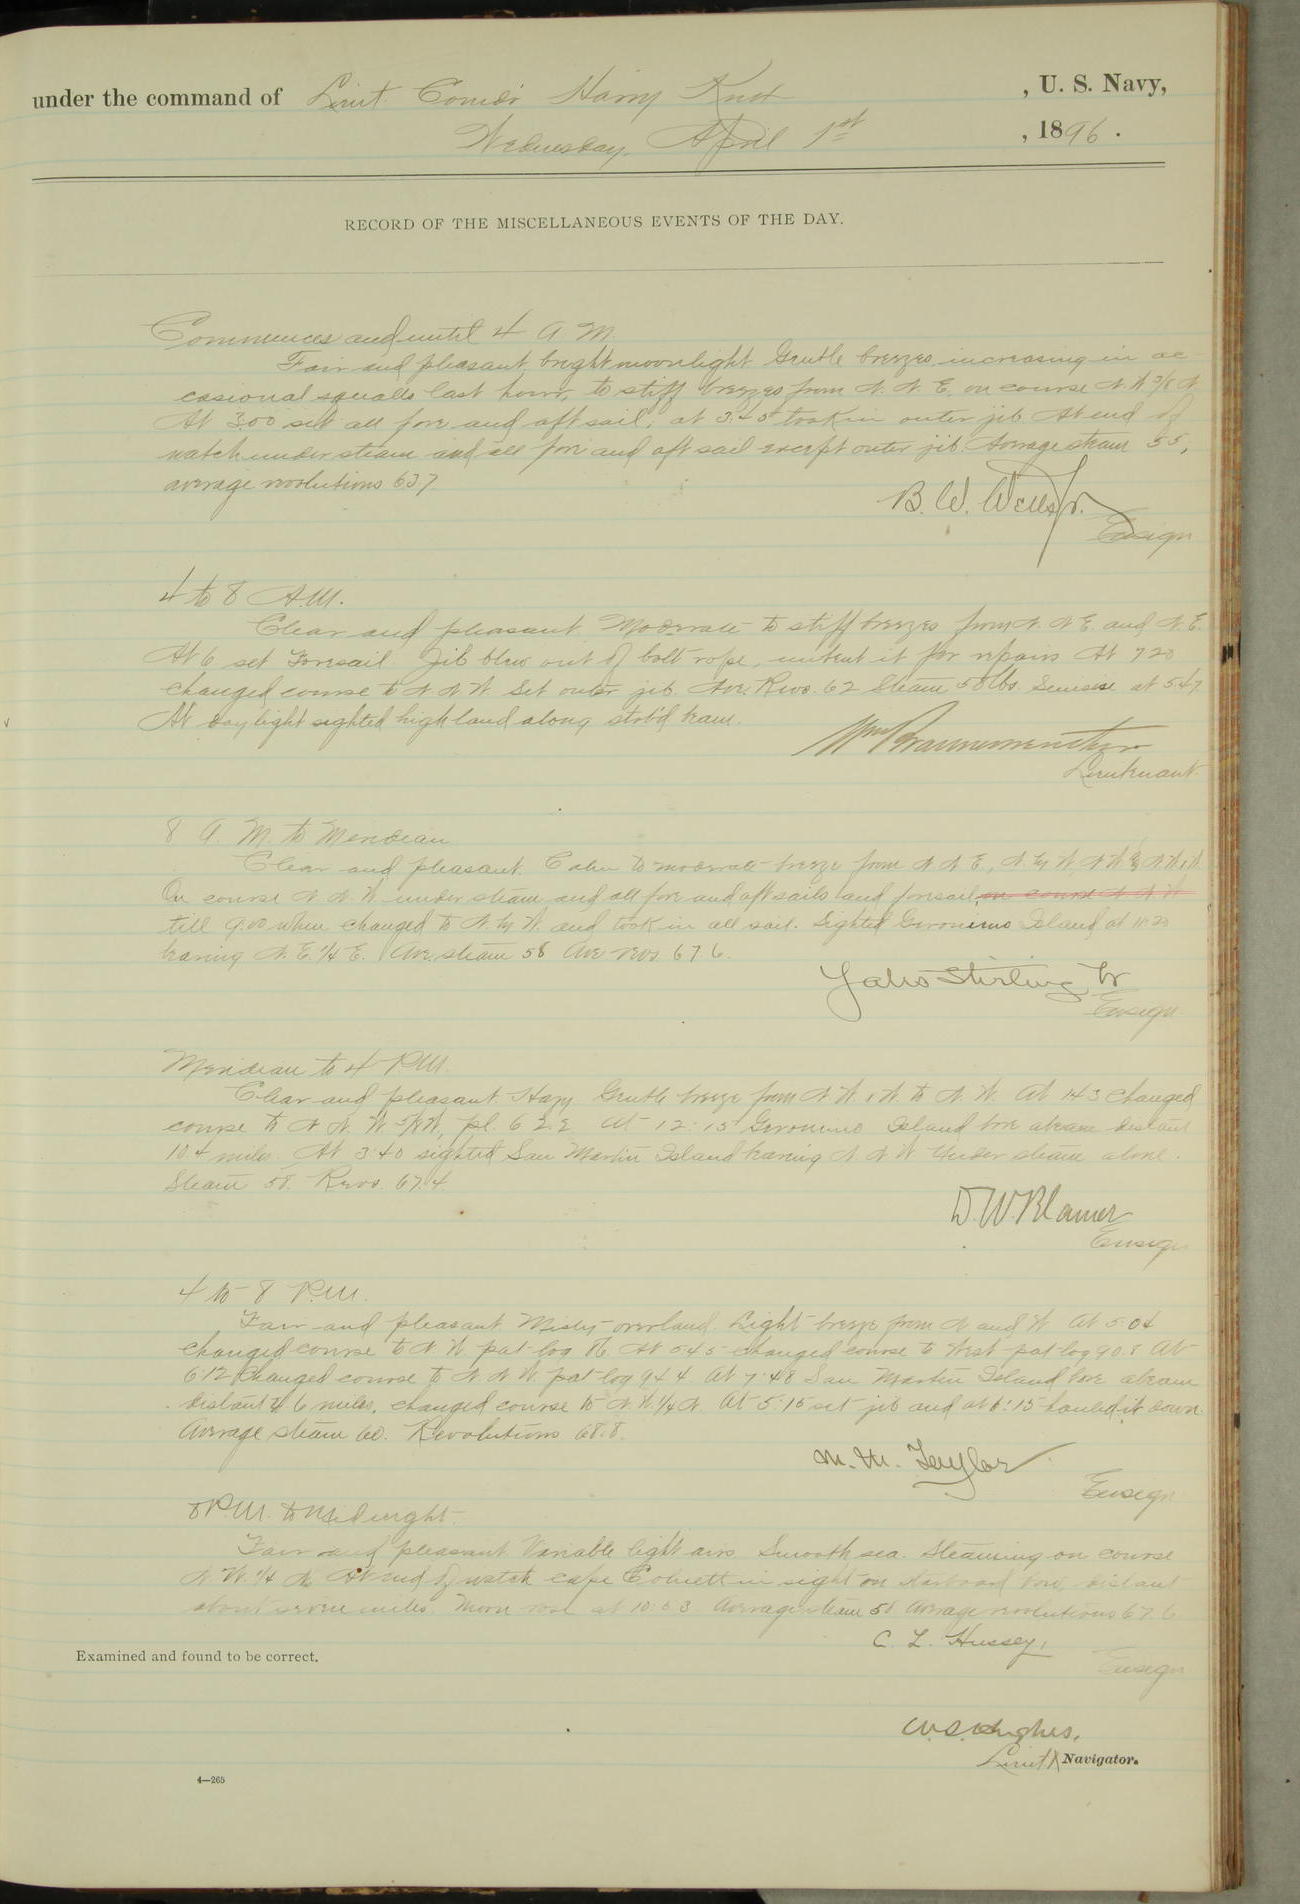 under the command of Lieut. Comdr Harry Knox, U. S. Navy,
Wednesday, April 1st, 1896.
RECORD OF THE MISCELLANEOUS EVENTS OF THE DAY.
Commences and until 4 A. M.
Fair and pleasant, bright moonlight Gentle breezes increasing in oc
casional squalls last hour, to stiff breezes from N. N. E. on course N. W 3/8 N.
At 3.00 set all fore and aft sail, at 3.45 took in outer jib. At end of
watch under steam and all fore and aft sail except outer jib. Average steam 55,
average revolutions 63.7
B. W. Wells Jr.
Ensign
4 to 8 A.M.
Clear and pleasant. Moderate to stiff breezes from N. N E. and N. E.
At 6 set Foresail. Jib blew out of bolt rope, unbent it for repairs At 7 20
changed course to N N W Set outer jib. Ave. Revs. 62 Steam 58 lbs. Sunrise at 5 47.
At daylight sighted high land along stob'd beam.
Wm Braunersreuther
Lieutenant.
8 A. M. to Meridian
Clear and pleasant. Calm to moderate breeze from N N E, N. by W, N W & N. W x N.
On course N N W under steam and all fore and aft sails and foresail, on course N N W
till 9.00 when changed to N. by W. and took in all sail. Sighted Geronimo Island at 11.20
bearing N. E. 1/4 E. Ave. steam 58 Ave revs. 67.6.
Yates Stirling Jr
Ensign.
Meridian to 4 P.M.
Clear and pleasant Hazy Gentle breeze from N W x N. to N. W. At 1 43 changed
course to N N. W 5/8 W, pl. 62.2 At 12:15 Geronimo Island bore abeam distant
10 4 miles. At 3:40 sighted San Martin Island bearing N N W Under steam alone.
Steam 58. Revs. 67.4
D. W. Blamer
Ensign
4 to 8 P.M.
Fair and pleasant Misty overland. Light breeze from N and W At 5 04
changed course to N W. pat-log 86 At 5 45 changed course to West pat log 90.8 At
6 12 changed course to N. N W. pat log 94 4. At 7:48 San Martin Island bore abeam
distant 4 6 miles, changed course to N. W. 1/4 N. At 5:15 set jib and at 6:15 hauled it down
Average steam 60. Revolutions 68.8.
M. M. Taylor
Ensign
8 P.M. to Midnight.
Fair and pleasant. Variable light airs Smooth sea. Steaming on course
N. W. 1/4 N. At end of watch cape Colnett in sight on starboard bow, distant
about seven miles. Moon rose at 10 53 Average steam 58 Average revolutions 67.6
C. L. Hussey,
Ensign
Examined and found to be correct.
W. S. Hughes,
Lieut & Navigator.
4—265